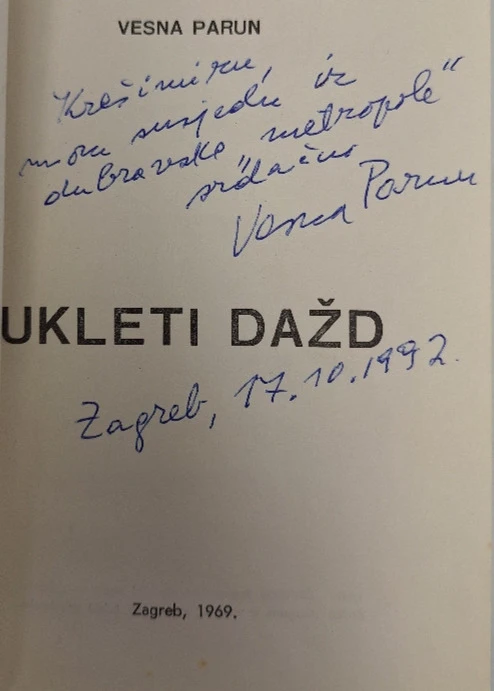 VESNA PARUN
Krešimiru,
mom susjedu iz
dubravske "metropole"
srdačno
Vesna Parun
UKLETI DAŽD
Zagreb, 17.10.1992.
Zagreb, 1969.